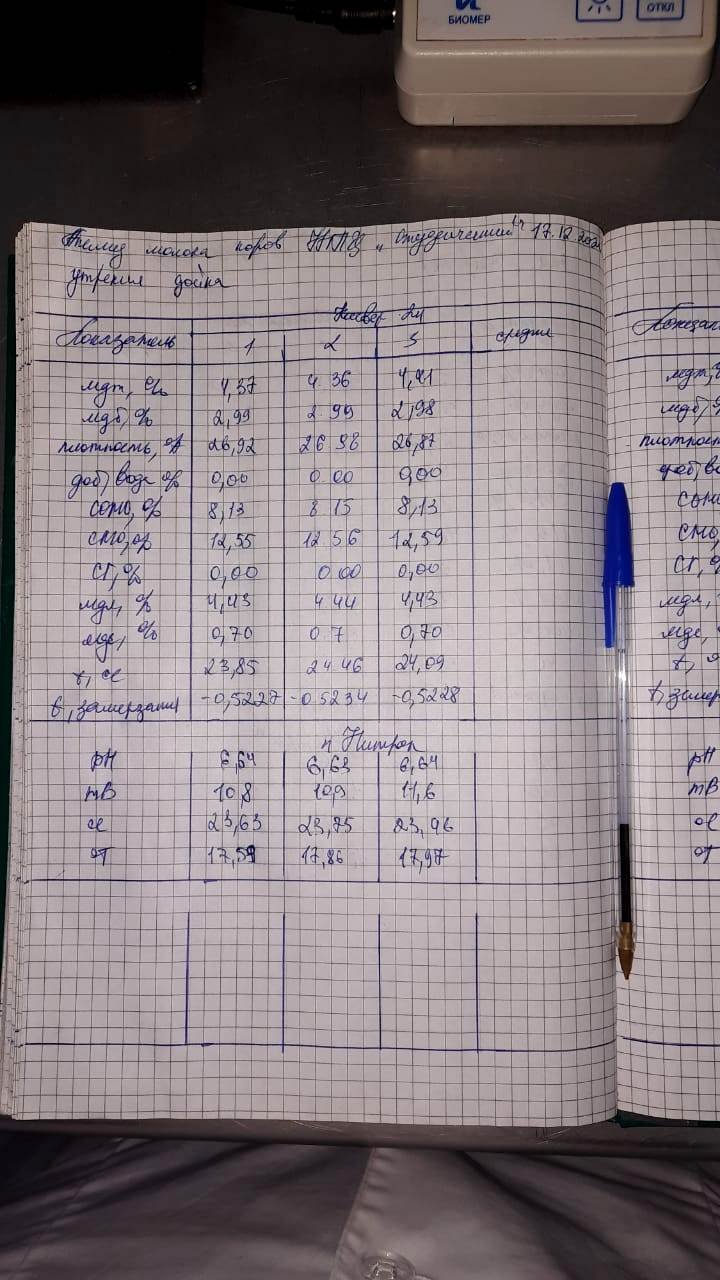 БИОМЕР
ОТКЛ
молока коров НПЦ „Студенческий" 17.12.202
утреняя дойка
Клевер 2м
Показатель 1 2 3 средня
мдж, % 4,37 4 36 4,41
мдб, % 2,99 2 99 2,98
плотность, °А 26,92 26 98 26,87
доб, вода % 0,00 0 00 0,00
СОМО, % 8,13 8 15 8,13
СМО, % 12,55 12 56 12,59
СГ, % 0,00 0 00 0,00
мдл, % 4,43 4 44 4,43
мдс, % 0,70 0 7 0,70
t, °C 23,85 24 46 24,09
t, замерзания -0,5227 -0 5234 -0,5228
п Нитрон
pH 6,64 6,63 6,64
mB 10,8 10,9 11,6
°C 23,63 23,75 23,96
°T 17,59 17,86 17,97
Показа
мдж,
мдб,
плотност
доб, во
СОМ
СМО,
СГ, %
мдл,
мдс,
t, °
t, замер
pH
mB
°C
°T